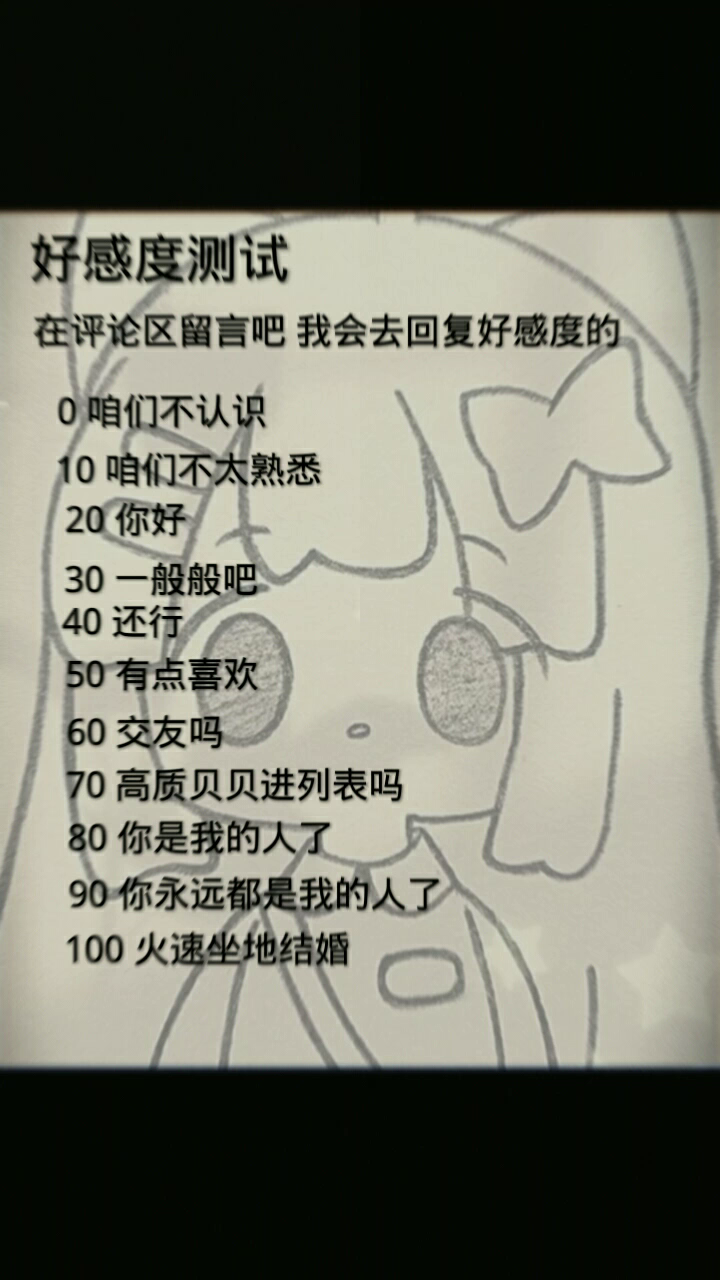 好感度测试
在评论区留言吧 我会去回复好感度的
0 咱们不认识
10 咱们不太熟悉
20 你好
30 一般般吧
40 还行
50 有点喜欢
60 交友吗
70 高质贝贝进列表吗
80 你是我的人了
90 你永远都是我的人了
100 火速坐地结婚